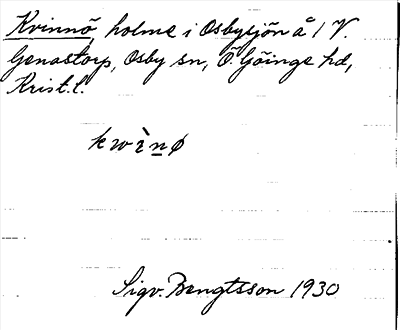 Kvinnö, holme i Osbysjön å 1 V.
Genastorp, Osby sn, Ö. Göinge hd,
Krist. l.
kwìnø
Sigv. Bengtsson 1930